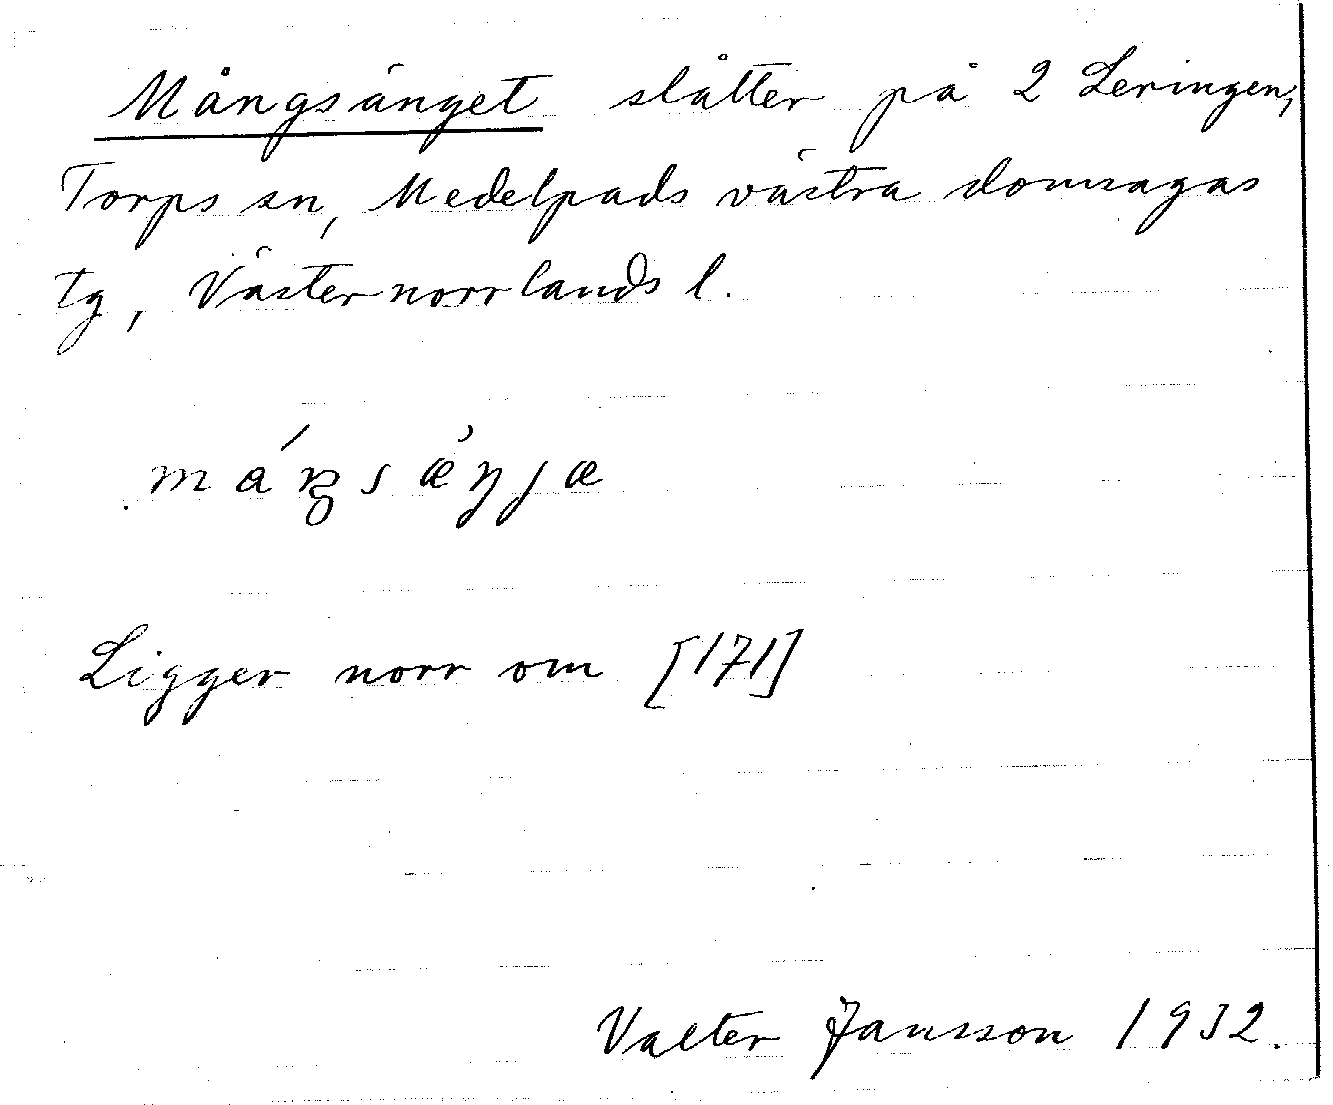 Mångsänget slåtter på 2 Leringen,
Torps sn, Medelpads västra domsagas
tg, Västernorrlands l.
Ligger norr om [171]
Valter Jansson 1932.